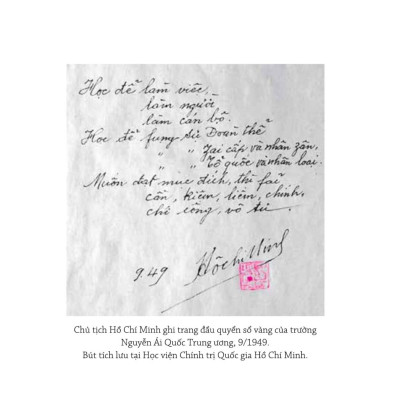 Học để làm việc,
làm người
làm cán bộ.
Học để fụng sự Đoàn thể
" " zai cấp và nhân zân,
" " tổ quốc và nhân loại.
Muốn đạt mục đích, thì fải
cần, kiệm, liêm, chính,
chí công, vô tư.
9.49 Hồ Chí Minh
Chủ tịch Hồ Chí Minh ghi trang đầu quyển sổ vàng của trường
Nguyễn Ái Quốc Trung ương, 9/1949.
Bút tích lưu tại Học viện Chính trị Quốc gia Hồ Chí Minh.